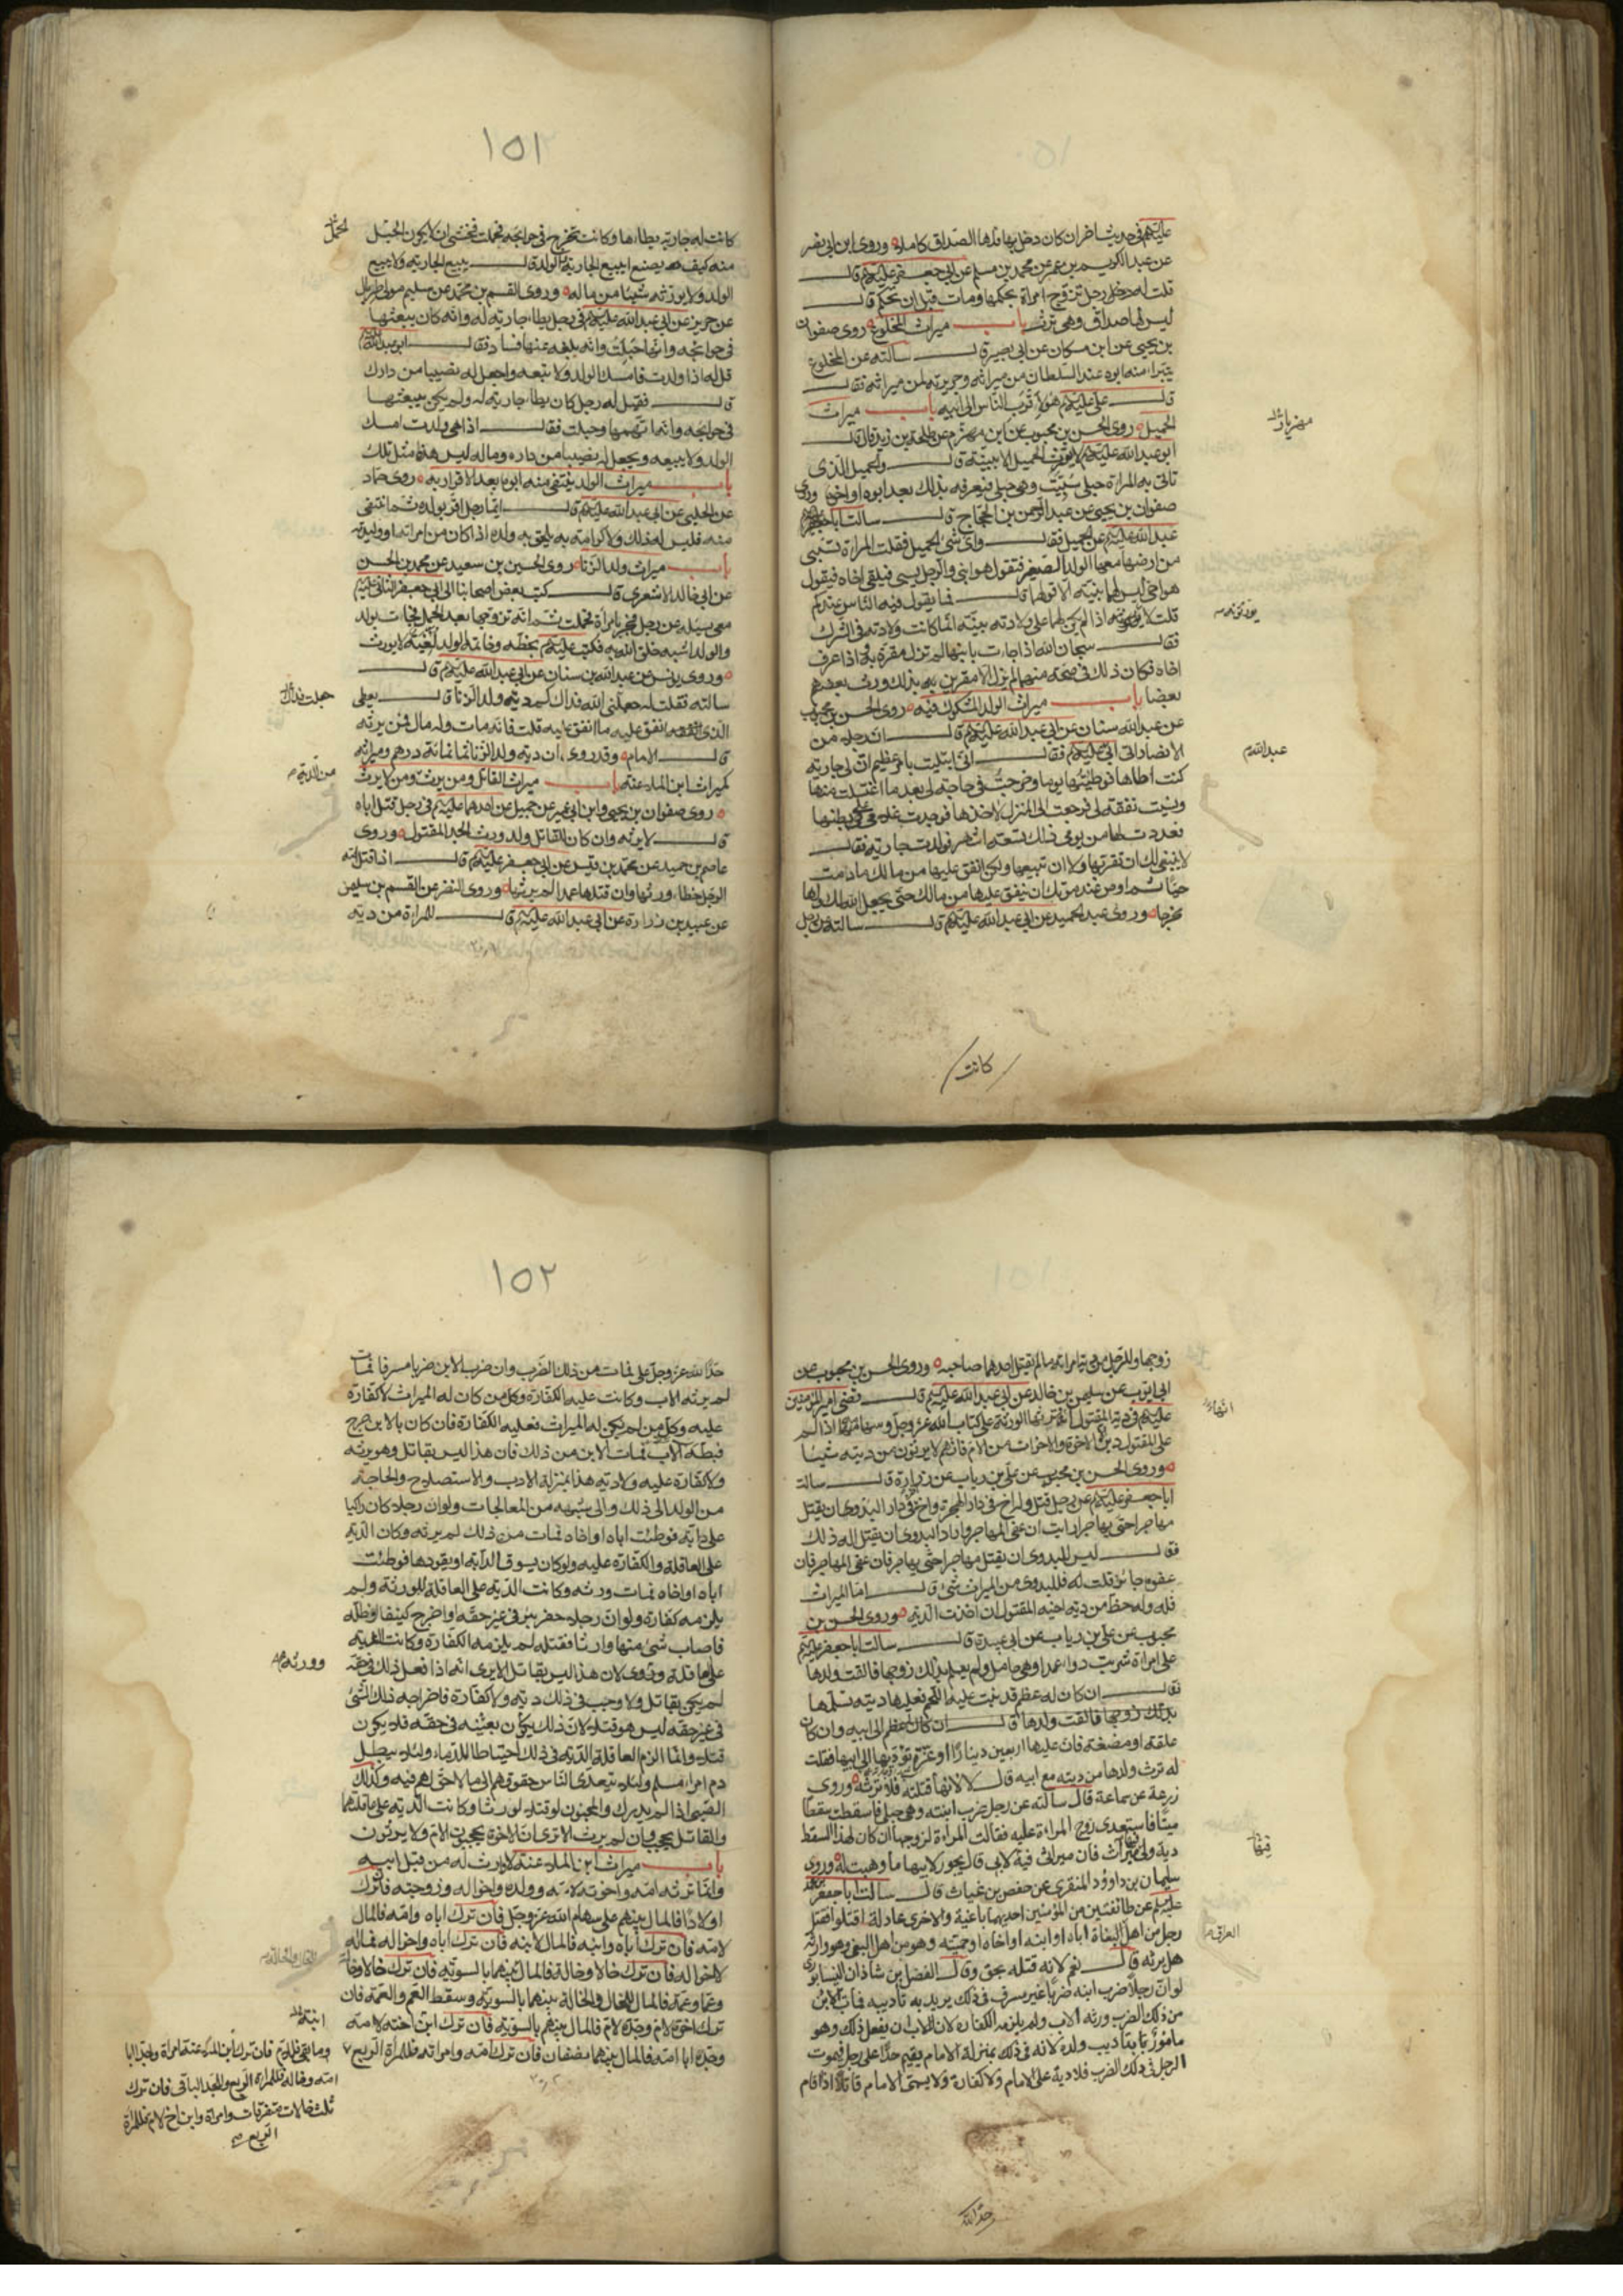 عليه السلم في حديث اخران كان دخل بها فلها الصداق كاملا وروى ابن ابي نصر
عن عبد الكريم بن عمرو عن محمد بن مسلم عن ابي جعفر عليه السلم قال
قلت له رجل تزوج امراة بحكمها ومات قبل ان تحكم قال
ليس لها صداق وهي ترث باب ميراث المخلوع روى صفوان
بن يحيى عن ابن مسكان عن ابي بصير قال سالته عن المخلوع
يتبرا منه ابوه عند السلطان من ميراثه وجريرته لمن ميراثه فقال
قال علي عليه السلم هو لاقرب الناس الى ابيه باب ميراث
الحميل روى الحسن بن محبوب عن ابن مهزم عن طلحة بن زيد قال قال
ابو عبد الله عليه السلم لا يورث الحميل الا ببينة قال والحميل الذي
تاتي به المراة حبلى سبيت وهي حبلى فيعرفه بذلك بعد ابوه او اخوه وروى
صفوان بن يحيى عن عبد الرحمن بن الحجاج قال سالت ابا
عبد الله عليه السلم عن الحميل فقال واي شئ الحميل فقلت المراة تسبى
من ارضها معها الولد الصغير فتقول هو ابني والرجل يسبى فيلقى اخاه فيقول
هو اخي ليس لهما بينة الا قولهما قال فما يقول فيه الناس عندكم
قلت لا يورثونه اذا لم يكن لهما على ولادته بينة انما كانت ولادته في الشرك
فقال سبحان الله اذا جاءت بابنها لم تزل مقرة به واذا عرف
اخاه فكان ذلك في صحة منهما لم يزالا مقرين به بذلك ورث بعضهم
بعضا باب ميراث الولد المشكوك فيه روى الحسن بن محبوب
عن عبد الله سنان عن ابي عبد الله عليه السلم قال ان رجلا من
الانصار اتى ابي عليه السلم فقال اني ابتليت بامر عظيم ان لي جارية
كنت اطاها فوطئتها يوما وخرجت في حاجة لي بعد ما اغتسلت منها
ونسيت نفقة لي فرجعت الى المنزل لاخذها فوجدت غلامي على بطنها
فعددت لها من يومي ذلك تسعة اشهر فولدت جارية فقال
لا ينبغي لك ان تقربها ولا ان تبيعها ولكن انفق عليها من مالك ما دمت
حيا ثم اوص عند موتك ان ينفق عليها من مالك حتى يجعل الله لك ولها
مخرجا وروى عبد الحميد عن ابي عبد الله عليه السلم قال سالته عن رجل
مهزيار
يورثونه
عبد الله
كانت
١٥١
كانت له جارية يطاءها وكانت تخرج في حوائجه فحملت فخشي ان لا يكون الحبل
منه كيف يصنع ايبيع الجارية والولد قال يبيع الجارية ولا يبيع
الولد ولا يورثه شيئا من ماله وروى القسم بن محمد عن سليم مولى طربال
عن حريز عن ابي عبد الله عليه السلم في رجل يطاء جارية له وانه كان يبعثها
في حوائجه وانها حبلت وانه بلغه عنها فساد فقال ابو عبد الله
قل له اذا ولدت فامسك الولد ولا تبعه واجعل له نصيبا من دارك
قال فقيل له رجل كان يطاء جارية له ولم يكن يبعثها
في حوائجه وانه اتهمها وحبلت فقال اذا هي ولدت امسك
الولد ولا يبيعه ويجعل له نصيبا من داره وماله ليس هذه مثل تلك
باب ميراث الولد ينتفي منه ابوه بعد الاقرار به روى حماد
عن الحلبي عن ابي عبد الله عليه السلم قال ايما رجل اقر بولده ثم انتفى
منه فليس له ذلك ولا كرامة به يلحق به ولده اذا كان من امراته او وليدته
باب ميراث ولد الزنا روى الحسين بن سعيد عن محمد بن الحسن
بن ابي خالد الاشعري قال كتب بعض اصحابنا الى ابي جعفر الثاني عليه السلم
معي يسئله عن رجل فجر بامراة فحملت ثم انه تزوجها بعد الحمل فجات بولد
والولد اشبه خلق الله به فكتب عليه السلم بخطه وخاتمه الولد لغية لا يورث
وروى يونس عن عبد الله بن سنان عن ابي عبد الله عليه السلم قال
سالته فقلت له جعلني الله فداك كم دية ولد الزنا قال يعطى
الذي انفق عليه ما انفق عليه قلت فانه مات وله مال فمن يرثه
قال الامام وقد روى ان دية ولد الزنا ثمانمائة درهم وميراثه
كميراث ابن الملاعنة باب ميراث القاتل ومن يرث ومن لا يرث
روى صفوان بن يحيى وابن ابي عمير عن جميل عن احدهما عليه السلم في رجل قتل اباه
قال لا يرثه وان كان للقاتل ولد ورث الجد المقتول وروى
عاصم بن حميد عن محمد بن قيس عن ابي جعفر عليه السلم قال اذا قتل امه
الرجل خطاء ورثها وان قتلها عمدا لم يرثها وروى النضر عن القسم بن سليمن
عن عبيد بن زرارة عن ابي عبد الله عليه السلم قال للمراة من دية
الحمل
من الدية
زوجها وللرجل من دية امراته ما لم يقتل احدهما صاحبه وروى الحسن بن محبوب عن
ابي ايوب عن سليمن بن خالد عن ابي عبد الله عليه السلم قال قضى امير المؤمنين
عليه السلم في دية المقتول انه يرثها الورثة على كتاب الله عز وجل وسهامهم اذا لم
على المقتول دين الا الاخوة والاخوات من الام فانهم لا يرثون من ديته شيئا
وروى الحسن بن محبوب عن علي بن رياب عن زرارة قال سالت
ابا جعفر عليه السلم عن رجل قتل وله اخ في دار الهجرة واخ في دار البدو ان يقتل
مهاجرا حتى يهاجر ارايت ان عفى المهاجر واراد البدوي ان يقتل اله ذلك
فقال ليس للبدوي ان يقتل مهاجرا حتى يهاجر فان عفى المهاجر فان
عفوه جائز قلت له فللبدوي من الميراث شئ قال اما الميراث
فله وله حظه من دية اخيه المقتول ان اخذت الدية وروى الحسن بن
محبوب عن علي بن رياب عن ابي عبيدة قال سالت ابا جعفر عليه السلم
عن امراة شربت دواء عمدا وهي حامل ولم يعلم بذلك زوجها فالقت ولدها
فقال ان كان له عظم قد نبت عليه اللحم فعليها دية تسلمها
الى ابيه وان كان
علقة او مضغة فان عليها اربعين دينارا او غرة تؤديها الى ابيها فقلت
له ترث ولدها من ديته مع ابيه قال لا لانها قتلته فلا ترثه وروى
زرعة عن سماعة قال سالته عن رجل ضرب ابنته وهي حبلى فاسقطت سقطا
ميتا فاستعدى زوج المراءة عليه فقالت المراءة لزوجها ان كان لهذا السقط
دية ولي ميراث فان ميراثي فيه لابي قال يجوز لابيها ما وهبت له وروى
سليمان بن داوود المنقري عن حفص بن غياث قال سالت ابا جعفر
عليه السلم عن طائفتين من المؤمنين احديهما باغية والاخرى عادلة اقتتلوا فقتل
رجل من اهل البغاة اباه او ابنه او اخاه او حميمه وهو من اهل البغي وهو وارثه
هل يرثه قال نعم لانه قتله بحق وقال الفضل بن شاذان النيسابوري
لو ان رجلا ضرب ابنه ضربا غير مسرف في ذلك يريد به تاديبه فمات الابن
من ذلك الضرب ورثه الاب ولم يلزمه الكفارة لان للاب ان يفعل ذلك وهو
مامور بتاديب ولده لانه في ذلك بمنزلة الامام يقيم حدا على رجل فيموت
الرجل في ذلك الضرب فلا دية على الامام ولا كفارة ولا يسمى الامام قاتلا اذا اقام
العراق
حدا لله
١٥٢
حدا لله عز وجل على فمات من ذلك الضرب وان ضرب الابن ضربا مسرفا فمات
لم يرثه الاب وكانت عليه الكفارة وكل من كان له الميراث لا كفارة
عليه وكل من لم يكن له الميراث فعليه الكفارة فان كان بالابن جرح
فبطه الاب فمات الابن من ذلك فان هذا ليس بقاتل وهو يرثه
ولا كفارة عليه ولا دية هذا بمنزلة الادب والاستصلاح والحاجة
من الولد الى ذلك والى شبهه من المعالجات ولو ان رجلا كان راكبا
على دابة فوطئت اباه او اخاه فمات من ذلك لم يرثه وكان الدية
على العاقلة والكفارة عليه ولو كان يسوق الدابة او يقودها فوطئت
اباه او اخاه فمات ورثه وكانت الدية على العاقلة للورثة ولم
يلزمه كفارة ولو ان رجلا حفر بئرا في غير حقه او اخرج كنيفا او ظلة
فاصاب شئ منها وارثا فقتله لم يلزمه الكفارة وكانت الدية
على العاقلة لان هذا ليس بقاتل الا يرى انه اذا فعل ذلك في حقه
لم يكن بقاتل ولا وجب في ذلك دية ولا كفارة فاخراجه ذلك الشئ
في غير حقه ليس هو قتلا لان ذلك يكون بعينه في حقه فلا يكون
قتلا وانما الزم العاقلة الدية في ذلك احتياطا للدماء ولئلا يبطل
دم امرا مسلم ولئلا يتعدى الناس حقوقهم الى ما لا حق لهم فيه وكذلك
الصبي اذا لم يدرك والمجنون لو قتلا لورثا وكانت الدية على عاقلتهما
والقاتل يحجب وان لم يرث الا ترى ان الاخوة يحجبون الام ولا يرثون
باب ميراث ابن الملاعنة لا وارث له من قبل ابيه
وانما ترثه امه واخوته لامه وولده واخواله وزوجته فان ترك
اولادا فالمال بينهم على سهام الله عز وجل فان ترك اباه وامه فالمال
لامه فان ترك اباه وابنه فالمال لابنه فان ترك اباه واخواله فماله
لاخواله فان ترك خالا وخالة فالمال بينهما بالسوية فان ترك خالا وخالة
وعما وعمة فالمال للخال والخالة بينهما بالسوية وسقط العم والعمة فان
ترك اخوة لام وجدة لام فالمال بينهم بالسوية فان ترك ابن اخته لامه
وجده ابا امه فالمال بينهما نصفان فان ترك امه وامراته فللمراة الربع
وورثه
ابنة
وما بقي فللام فان ترك ابن الملاعنة امراة وجد ابا
امه وخاله فللمراة الربع وللجد الباقي فان ترك
ثلث خالات متفرقات وامراة وابن اخ لام فللمراة
الربع